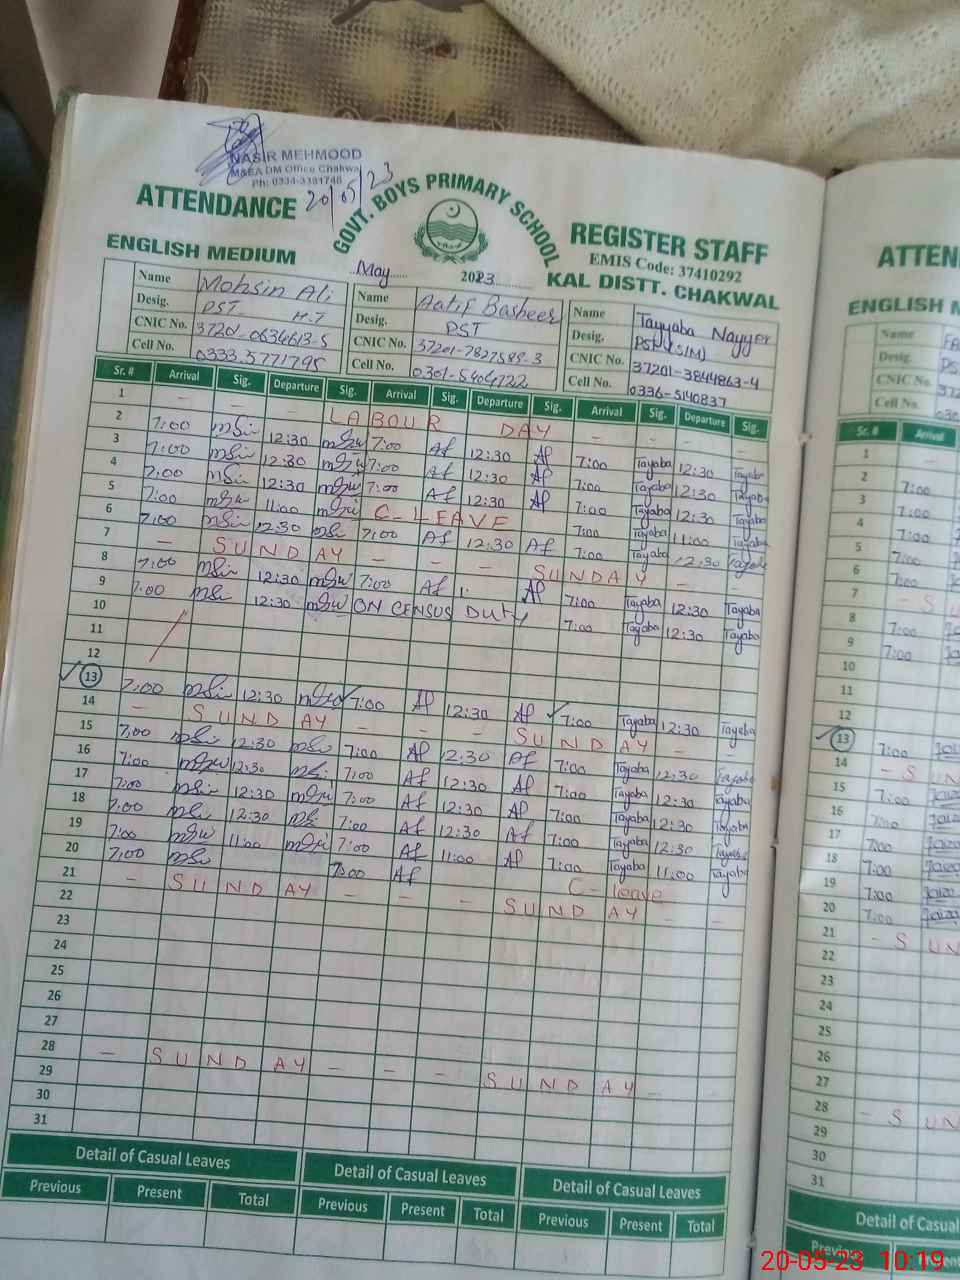 NASIR MEHMOOD
M&EA DM Office Chakwal
Ph: 0334-3391748
20/05/23
ATTENDANCE
GOVT. BOYS PRIMARY SCHOOL
REGISTER STAFF
EMIS Code: 37410292
ENGLISH MEDIUM
May 2023
KAL DISTT. CHAKWAL
Name Mohsin Ali Name Aatif Basheer Name Tayyaba Nayyer
Desig. PST H.T Desig. PST Desig. PST (SIM)
CNIC No. 37201-0634613-5 CNIC No. 37201-7827589-3 CNIC No. 37201-3844863-4
Cell No. 0333.5771795 Cell No. 0301-5404722 Cell No. 0336-5140837
Sr. # Arrival Sig. Departure Sig. Arrival Sig. Departure Sig. Arrival Sig. Departure Sig.
1 - - LABOUR DAY - - -
2 7:00 12:30 7:00 Af 12:30 Af 7:00 Tayaba 12:30 Tayaba
3 7:00 12:30 7:00 Af 12:30 Af 7:00 Tayaba 12:30 Tayaba
4 7:00 12:30 7:00 Af 12:30 Af 7:00 Tayaba 12:30 Tayaba
5 7:00 11:00 C-LEAVE 7:00 Tayaba 11:00 Tayaba
6 7:00 12:30 7:00 Af 12:30 Af 7:00 Tayaba 12:30 Tayaba
7 - SUNDAY - - - SUNDAY -
8 7:00 12:30 7:00 Af Af 7:00 Tayaba 12:30 Tayaba
9 7:00 12:30 ON CENSUS DUTY 7:00 Tayaba 12:30 Tayaba
10
11
12
13 7:00 12:30 7:00 Af 12:30 Af 7:00 Tayaba 12:30 Tayaba
14 - SUNDAY - - - SUNDAY - -
15 7:00 12:30 7:00 Af 12:30 Af 7:00 Tayaba 12:30 Tayaba
16 7:00 12:30 7:00 Af 12:30 Af 7:00 Tayaba 12:30 Tayaba
17 7:00 12:30 7:00 Af 12:30 Af 7:00 Tayaba 12:30 Tayaba
18 7:00 12:30 7:00 Af 12:30 Af 7:00 Tayaba 12:30 Tayaba
19 7:00 11:00 7:00 Af 11:00 Af 7:00 Tayaba 11:00 Tayaba
20 7:00 7:00 Af C-leave
21 - SUNDAY - - SUNDAY - -
22
23
24
25
26
27
28 - SUNDAY - - - SUNDAY - -
29
30
31
Detail of Casual Leaves Detail of Casual Leaves Detail of Casual Leaves
Previous Present Total Previous Present Total Previous Present Total
ATTEN
ENGLISH M
Name
Desig.
CNIC No.
Cell No.
Sr. # Arrival
1
2 7:00
3 7:00
4 7:00
5 7:00
6 7:00
7 - S U
8 7:00
9 7:00
10
11
12
13 7:00
14 - S UN
15 7:00
16 7:00
17 7:00
18 7:00
19 7:00
20 7:00
21 - S UN
22
23
24
25
26
27
28 - S UN
29
30
31
Detail of Casual
20-05-23 10:19